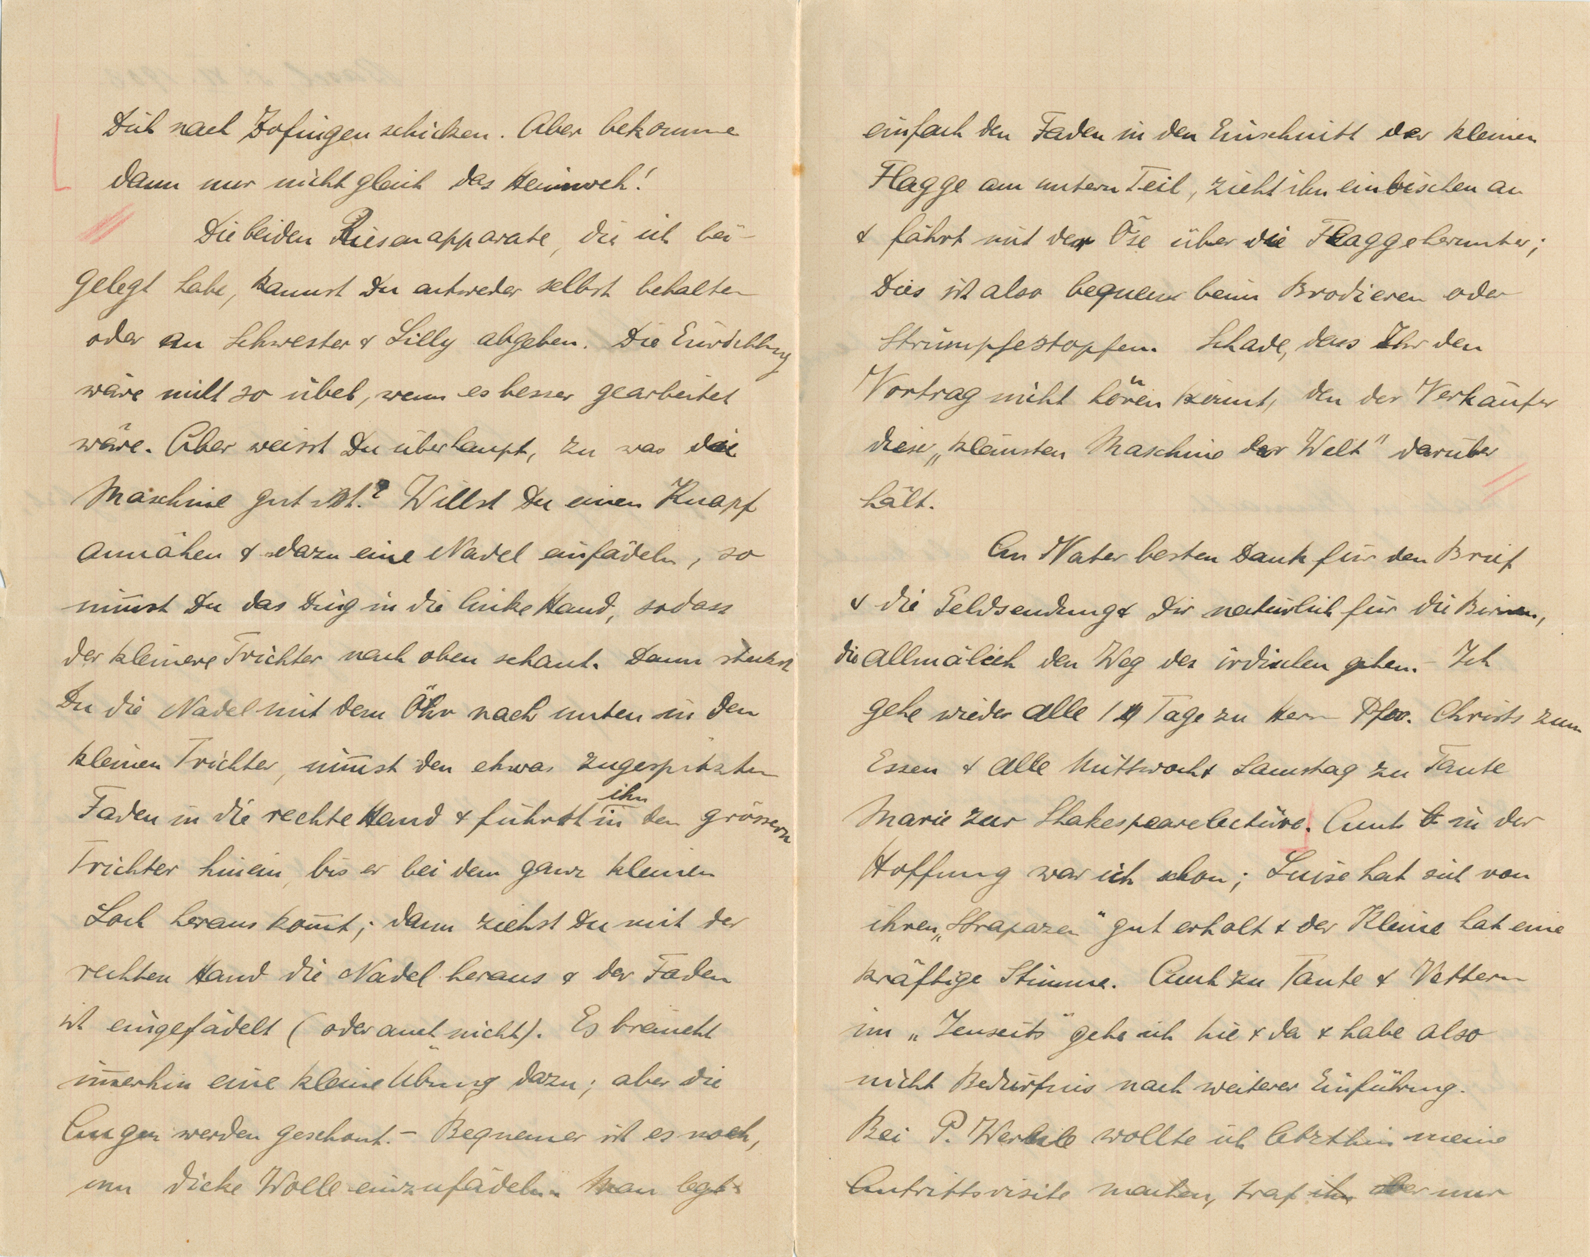 Dich nach Zofingen schicken. Aber bekomme
dann nur nicht gleich das Heimweh!
Die beiden Riesenapparate, die ich bei-
gelegt habe, kannst Du entweder selbst behalten
oder an Schwester & Lilly abgeben. Die Einrichtung
wäre nicht so übel, wenn es besser gearbeitet
wäre. Aber weisst Du überhaupt, zu was die
Maschine gut ist? Willst Du einen Knopf
annähen & dazu eine Nadel einfädeln, so
nim̅st Du das Ding in die linke Hand, sodass
der kleinere Trichter nach oben schaut. Dann steckst
Du die Nadel mit dem Öhr nach unten in den
kleinen Trichter, nim̅st den etwas zugespitzten
Faden in die rechte Hand & führst ihn in den grössern
Trichter hinein, bis er bei dem ganz kleinen
Loch heraus kom̅t; dann ziehst Du mit der
rechten Hand die Nadel heraus & der Faden
ist eingefädelt (oder auch nicht). Es braucht
im̅erhin eine kleine Übung dazu; aber die
Augen werden geschont. – Bequemer ist es noch,
um dicke Wolle einzufädeln. Man legt
einfach den Faden in den Einschnitt der kleinen
Flagge am untern Teil, zieht ihn ein bischen an
& fährt mit der Öse über die Flagge herunter;
Dies ist also bequem beim Brodieren oder
Strümpfestopfen. Schade, dass Ihr den
Vortrag nicht hören könnt, den der Verkäufer
dieser „kleinsten Maschine der Welt" darüber
hält.
An Vater besten Dank für den Brief
& die Geldsendung & Dir natürlich für die Birnen,
die allmälich den Weg des irdischen gehen. – Ich
gehe wieder alle 14 Tage zu Herrn Pfr. Christ zum
Essen & alle Mittwoch & Samstag zu Tante
Marie zur Shakespearelectüre. Auch in der
Hoffnung war ich schon; Luise hat sich von
ihren „Strapazen" gut erholt & der Kleine hat eine
kräftige Stimme. Auch zu Tante & Vettern
im „Jenseits" gehe ich hie & da & habe also
nicht Bedürfnis nach weiterer Einführung.
Bei P. Wernle wollte ich letzthin meine
Antrittsvisite machen, traf ihn aber nur